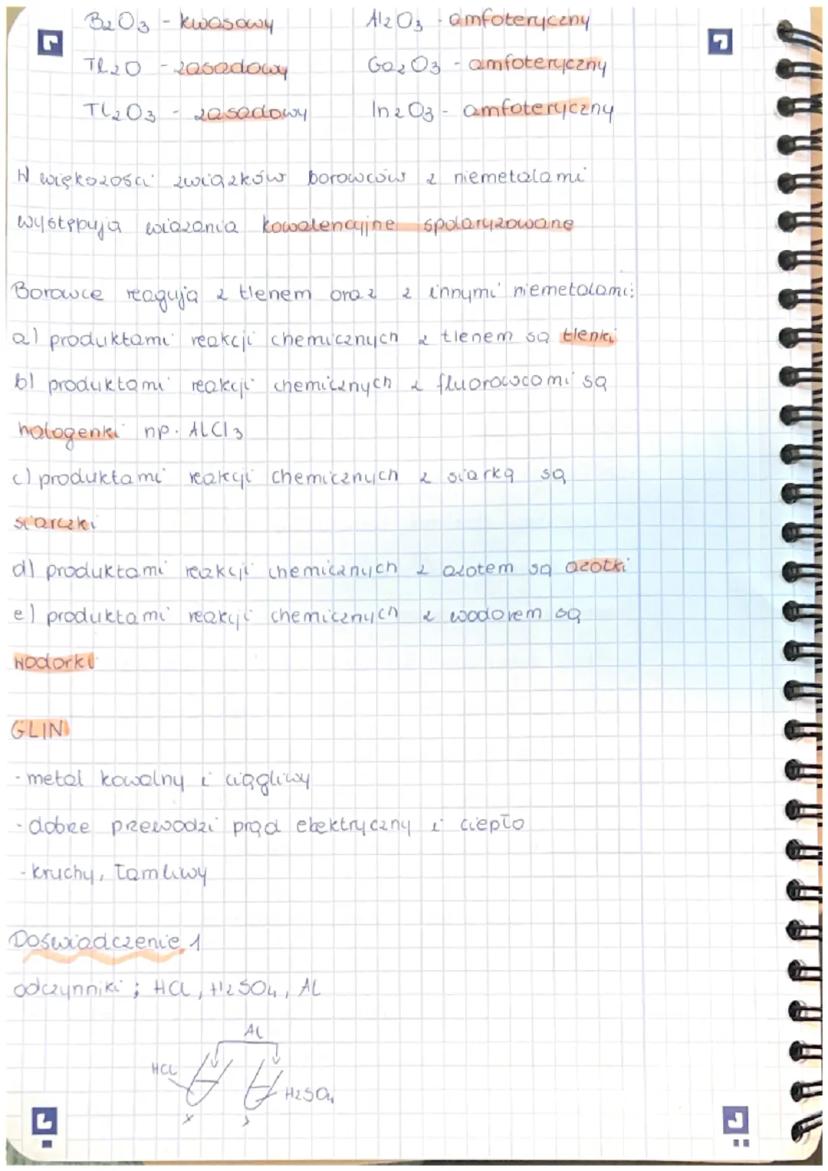 B2O3 - kwasowy Al2O3 - amfoteryczny
Tl2O - zasadowy Ga2O3 - amfoteryczny
Tl2O3 - zasadowy In2O3 - amfoteryczny
W większości związków borowców z niemetalami
występują wiązania kowalencyjne spolaryzowane
Borowce reagują z tlenem oraz z innymi niemetalami:
a) produktami reakcji chemicznych z tlenem są tlenki
b) produktami reakcji chemicznych z fluorowcami są
halogenki np. AlCl3
c) produktami reakcji chemicznych z siarką są
siarczki
d) produktami reakcji chemicznych z azotem są azotki
e) produktami reakcji chemicznych z wodorem są
wodorki
GLIN
- metal kowalny i ciągliwy
- dobrze przewodzi prąd elektryczny i ciepło
- kruchy, łamliwy
Doświadczenie 1
odczynniki; HCl, H2SO4, Al
Al
HCl
H2SO4